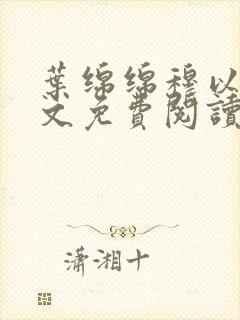 葉綿綿穆以
文免費閱讀
瀟湘十